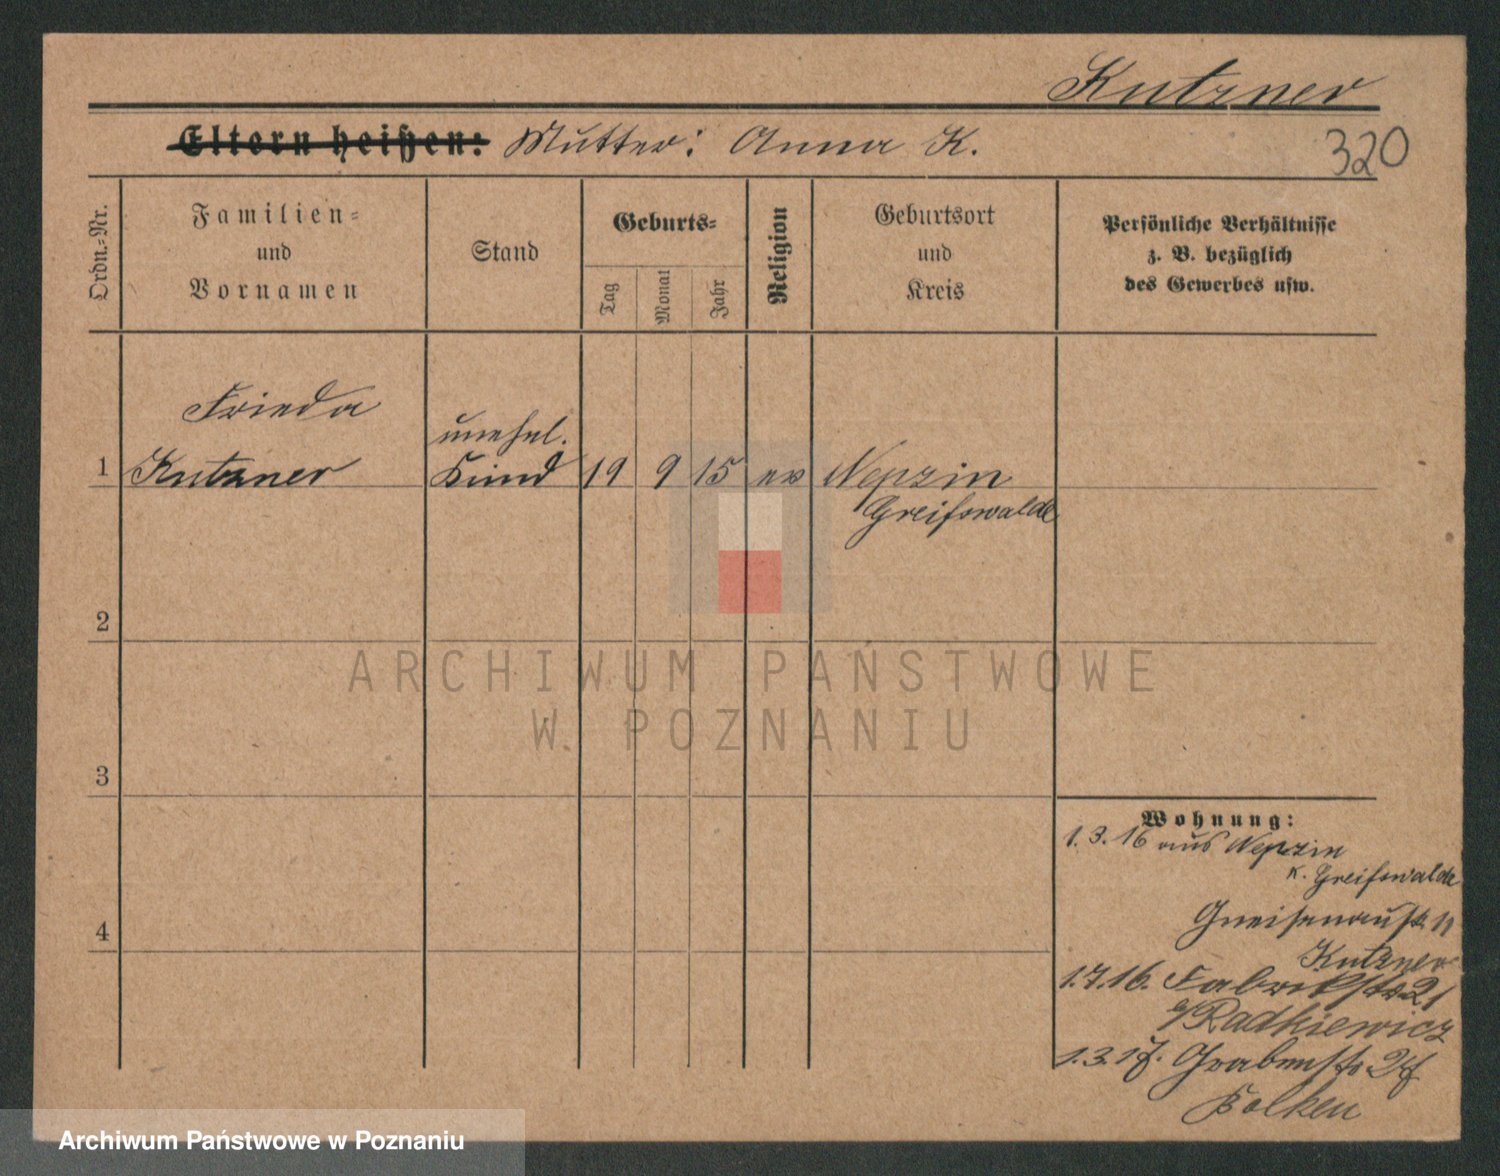 Kutzner
Eltern heißen: Mutter: Anna K.
320
Ordn.-Nr.
Familien-
und
Vornamen
Stand
Geburts-
Tag
Monat
Jahr
Religion
Geburtsort
und
Kreis
Persönliche Verhältnisse
z. B. bezüglich
des Gewerbes usw.
Frieda
1 Kutzner
unehel.
Kind
19 9 15 ev Nepzin
Greifswalde
2
3
4
ARCHIWUM PAŃSTWOWE
W POZNANIU
Wohnung:
1.3.16 aus Nepzin
K. Greifswalde
Gneisenaustr. 11
Kutzner
1.7.16. Fabrikstr. 21
b/Radkiewicz
1.3.17. Grabenstr. 27
Archiwum Państwowe w Poznaniu